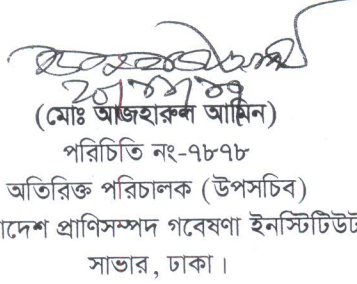 (মোঃ আজহারুল আমিন)
পরিচিতি নং-৭৮৭৮
অতিরিক্ত পরিচালক (উপসচিব)
াদেশ প্রাণিসম্পদ গবেষণা ইনস্টিটিউট
সাভার, ঢাকা।